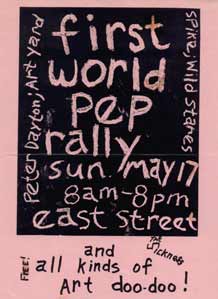 first
world
pep
rally
sun. may 17
8am-8pm
east street
Peter Dayton; Art Yard
Spike, Wild Stares
The Licknots
and
FREE! all kinds of
Art doo-doo!